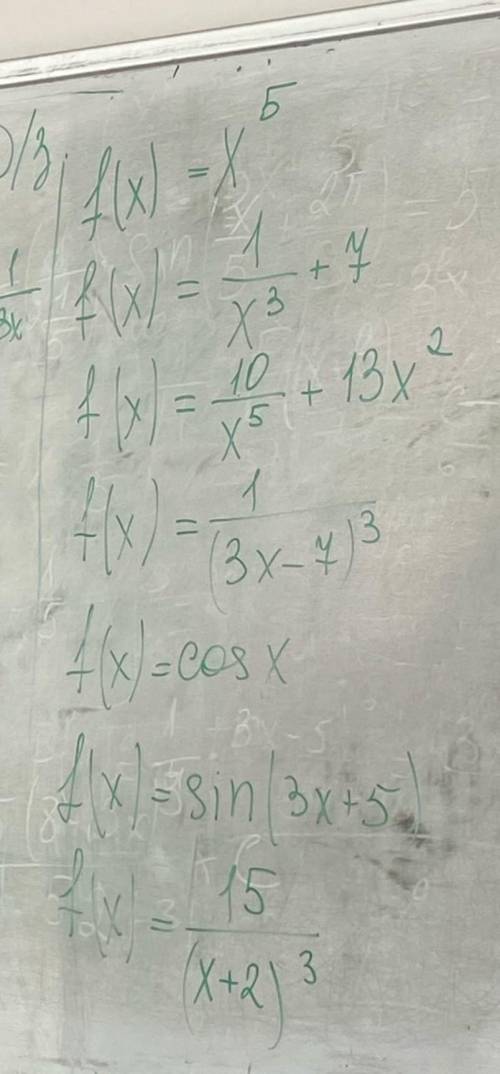 D/з.
f(x) = x⁵
1/3x
f(x) = 1/x³ + 7
f(x) = 10/x⁵ + 13x²
f(x) = 1/(3x-7)³
f(x) = cos x
f(x) = sin(3x+5)
f(x) = 15/(x+2)³